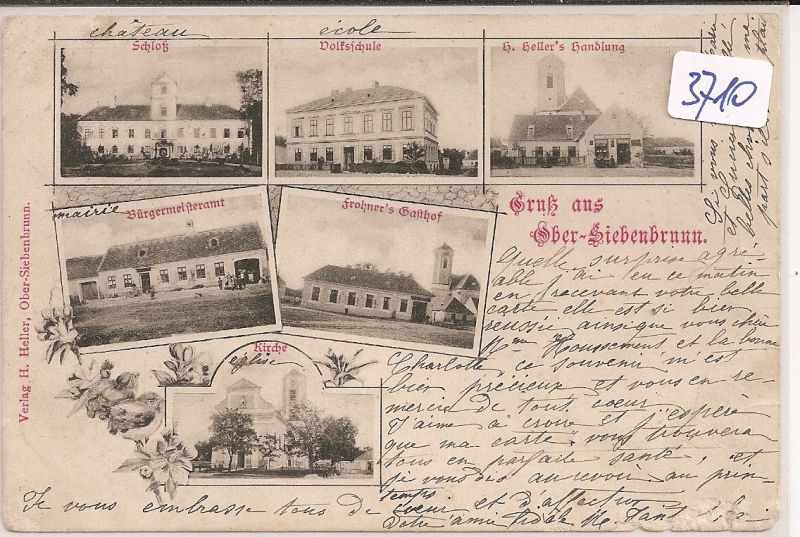 château
école
Schloß
Volksschule
H. Heller's Handlung
3710
mairie
Bürgermeisteramt
Frohner's Gasthof
Gruß aus
Ober-Siebenbrunn.
Verlag H. Heller, Ober-Siebenbrunn.
Kirche
église
Quelle surprise agré-
able j'ai eu ce matin
en recevant votre belle
carte elle est si bien
réussie ainsi que vous chère
Mme Houssement et la bonne
Charlotte ce souvenir m'est
bien précieux et vous en re-
mercie de tout cœur
J'aime à croire et j'espère
que ma carte vous trouvera
tous en parfaite santé, et
je vous dis au revoir au prin-
temps
Je vous embrasse tous de cœur et d'affection
Votre amie
Si vous
belles choses
part